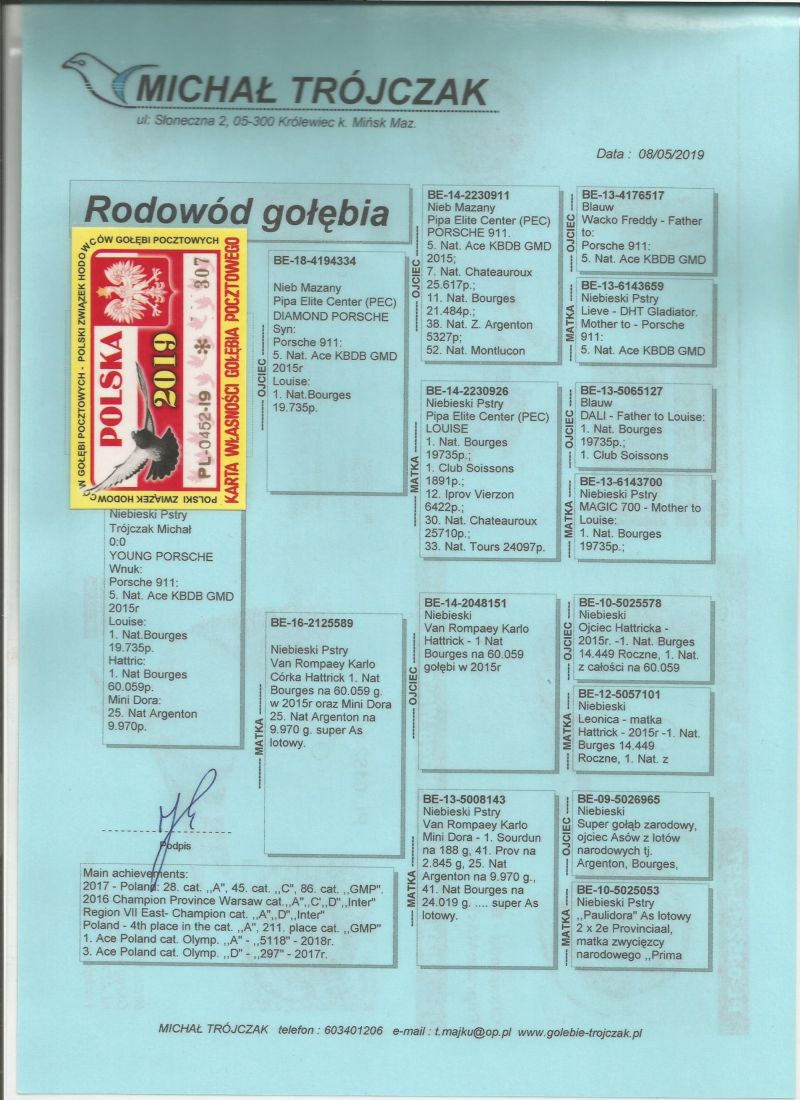 MICHAŁ TRÓJCZAK
ul: Słoneczna 2, 05-300 Królewiec k. Mińsk Maz.
Data : 08/05/2019
Rodowód gołębia
POLSKI ZWIĄZEK HODOWCÓW GOŁĘBI POCZTOWYCH - POLSKI ZWIĄZEK HODOWCÓW GOŁĘBI POCZTOWYCH
POLSKA
2019
PL-0452-19 * 307
KARTA WŁASNOŚCI GOŁĘBIA POCZTOWEGO
Niebieski Pstry
Trójczak Michał
0:0
YOUNG PORSCHE
Wnuk:
Porsche 911:
5. Nat. Ace KBDB GMD
2015r
Louise:
1. Nat.Bourges
19.735p.
Hattric:
1. Nat Bourges
60.059p.
Mini Dora:
25. Nat Argenton
9.970p.
OJCIEC
BE-18-4194334
Nieb Mazany
Pipa Elite Center (PEC)
DIAMOND PORSCHE
Syn:
Porsche 911:
5. Nat. Ace KBDB GMD
2015r
Louise:
1. Nat.Bourges
19.735p.
MATKA
BE-16-2125589
Niebieski Pstry
Van Rompaey Karlo
Córka Hattrick 1. Nat
Bourges na 60.059 g.
w 2015r oraz Mini Dora
25. Nat Argenton na
9.970 g. super As
lotowy.
OJCIEC
BE-14-2230911
Nieb Mazany
Pipa Elite Center (PEC)
PORSCHE 911.
5. Nat. Ace KBDB GMD
2015;
7. Nat. Chateauroux
25.617p.;
11. Nat. Bourges
21.484p.;
38. Nat. Z. Argenton
5327p;
52. Nat. Montlucon
MATKA
BE-14-2230926
Niebieski Pstry
Pipa Elite Center (PEC)
LOUISE
1. Nat. Bourges
19735p.;
1. Club Soissons
1891p.;
12. Iprov Vierzon
6422p.;
30. Nat. Chateauroux
25710p.;
33. Nat. Tours 24097p.
OJCIEC
BE-14-2048151
Niebieski
Van Rompaey Karlo
Hattrick - 1 Nat
Bourges na 60.059
gołębi w 2015r
MATKA
BE-13-5008143
Niebieski Pstry
Van Rompaey Karlo
Mini Dora - 1. Sourdun
na 188 g, 41. Prov na
2.845 g, 25. Nat
Argenton na 9.970 g.,
41. Nat Bourges na
24.019 g. .... super As
lotowy.
OJCIEC
BE-13-4176517
Blauw
Wacko Freddy - Father
to:
Porsche 911:
5. Nat. Ace KBDB GMD
MATKA
BE-13-6143659
Niebieski Pstry
Lieve - DHT Gladiator.
Mother to - Porsche
911:
5. Nat. Ace KBDB GMD
OJCIEC
BE-13-5065127
Blauw
DALI - Father to Louise:
1. Nat. Bourges
19735p.;
1. Club Soissons
MATKA
BE-13-6143700
Niebieski Pstry
MAGIC 700 - Mother to
Louise:
1. Nat. Bourges
19735p.;
OJCIEC
BE-10-5025578
Niebieski
Ojciec Hattricka -
2015r. -1. Nat. Burges
14.449 Roczne, 1. Nat.
z całości na 60.059
MATKA
BE-12-5057101
Niebieski
Leonica - matka
Hattrick - 2015r -1. Nat.
Burges 14.449
Roczne, 1. Nat. z
OJCIEC
BE-09-5026965
Niebieski
Super gołąb zarodowy,
ojciec Asów z lotów
narodowych tj.
Argenton, Bourges,
MATKA
BE-10-5025053
Niebieski Pstry
,,Paulidora" As lotowy
2 x 2e Provinciaal,
matka zwycięzcy
narodowego ,,Prima
Podpis
Main achievements:
2017 - Poland: 28. cat. ,,A", 45. cat. ,,C", 86. cat. ,,GMP".
2016 Champion Province Warsaw cat.,,A",,C',,D",,Inter"
Region VII East- Champion cat. ,,A",,D",,Inter"
Poland - 4th place in the cat. ,,A", 211. place cat. ,,GMP"
1. Ace Poland cat. Olymp. ,,A" - ,,5118" - 2018r.
3. Ace Poland cat. Olymp. ,,D" - ,,297" - 2017r.
MICHAŁ TRÓJCZAK telefon : 603401206 e-mail : t.majku@op.pl www.golebie-trojczak.pl